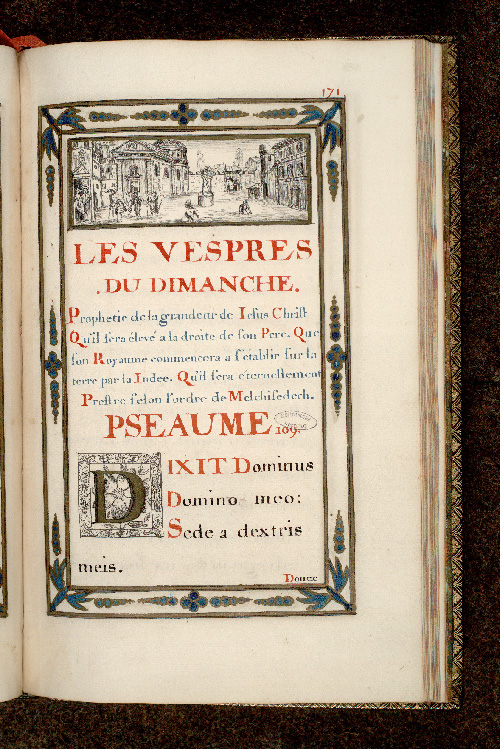 171
LES VESPRES
. DU DIMANCHE.
Prophetie de la grandeur de Iesus Christ
Qu'il sera élevé a la droite de son Pere. Que
son Royaume commencera a s'établir sur la
terre par la Iudee. Qu'il sera éternellement
Prestre selon l'ordre de Melchisedech.
PSEAUME 109.
DIXIT Dominus
Domino meo:
Sede a dextris
meis.
Donec